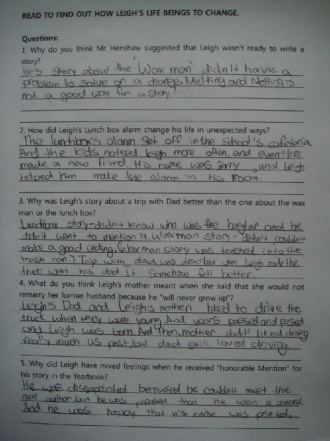 READ TO FIND OUT HOW LEIGH'S LIFE BEINGS TO CHANGE.
Questions:
1. Why do you think Mr. Henshaw suggested that Leigh wasn't ready to write a
story?
He's story about the 'Wax man' didn't have a
problem to solve or a change. Melting and Melting is
not a good way for a story.
2. How did Leigh's Lunch box alarm change his life in unexpected ways?
The lunchbox's alarm set off in the school's cafeteria.
And the kids noticed Leigh more often and even he
made a new friend. His name was Barry and Leigh
helped him make the alarm in his room.
3. Why was Leigh's story about a trip with Dad better than the one about the wax
man or the lunch box?
Lunchbox story - didn't know who was the burglar and he
didn't want to mention it. Wax man story - didn't couldn't
make a good ending. Wax man story was
Trip with dad was when Leigh rode the
truck with his dad it somehow felt better.
4. What do you think Leigh's mother meant when she said that she would not
remarry her former husband because he "will never grow up"?
Leigh's Dad and Leigh's mother liked to drive the
truck when they were young. And years passed and passed
and Leigh was born. And then, mother didn't liked driving
really much as past, but dad still loved driving.
5. Why did Leigh have mixed feelings when he received "honorable Mention" for
his story in the Yearbook?
He was disappointed because he couldn't meet the
real author but he was pleased that he won a award.
And he was happy that his name was printed.